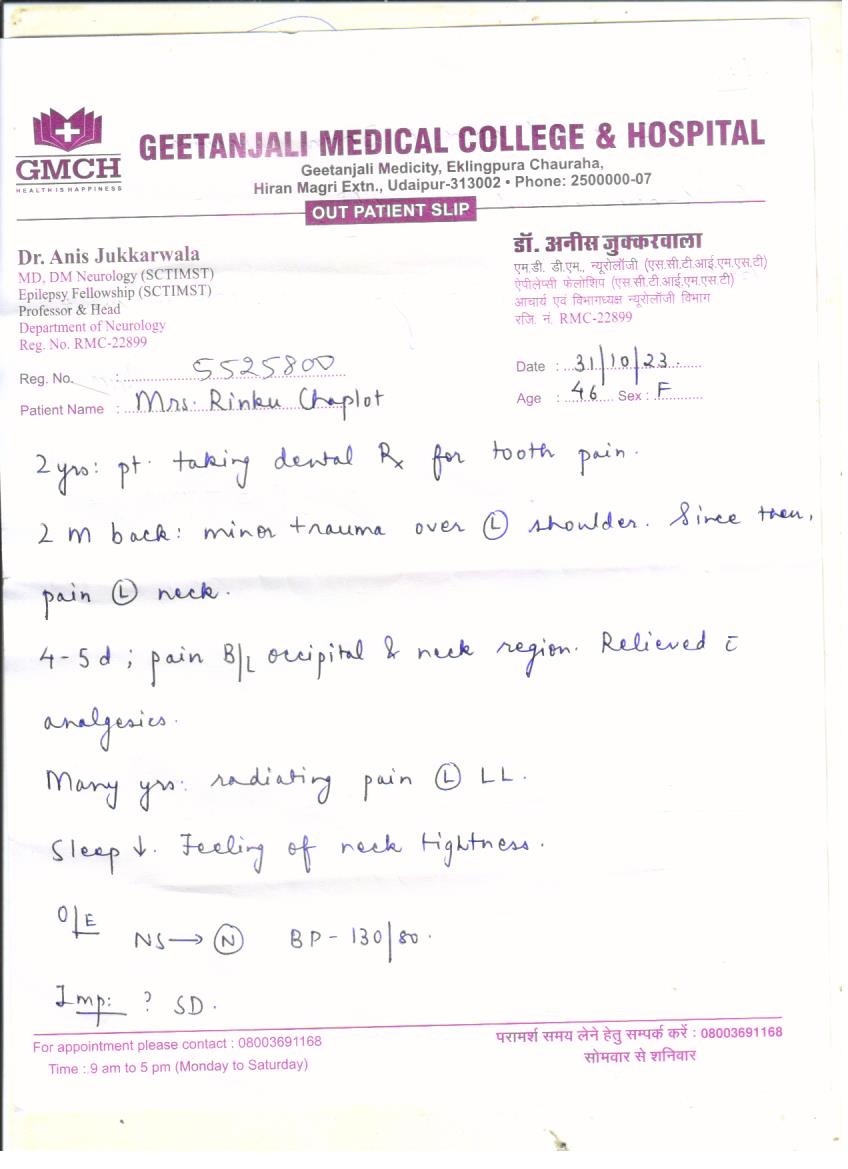 GMCH
HEALTH IS HAPPINESS
GEETANJALI MEDICAL COLLEGE & HOSPITAL
Geetanjali Medicity, Eklingpura Chauraha,
Hiran Magri Extn., Udaipur-313002 • Phone: 2500000-07
OUT PATIENT SLIP
Dr. Anis Jukkarwala
MD, DM Neurology (SCTIMST)
Epilepsy Fellowship (SCTIMST)
Professor & Head
Department of Neurology
Reg. No. RMC-22899
डॉ. अनीस जुक्करवाला
एम.डी. डी.एम., न्यूरोलॉजी (एस.सी.टी.आई.एम.एस.टी)
ऐपीलेप्सी फेलोशिप (एस.सी.टी.आई.एम.एस.टी)
आचार्य एवं विभागध्यक्ष न्यूरोलॉजी विभाग
रजि. नं. RMC-22899
Reg. No. : 5525800
Patient Name : Mrs. Rinku Chaplot
Date : 31/10/23.
Age : 46 Sex : F
2 yrs: pt. taking dental Rx for tooth pain.
2 m back: minor trauma over Ⓛ shoulder. Since then,
pain Ⓛ neck.
4-5 d; pain B/L occipital & neck region. Relieved c̄
analgesics.
Many yrs: radiating pain Ⓛ LL.
Sleep ↓. Feeling of neck tightness.
O/E
NS → Ⓝ BP - 130/80.
Imp: ? SD.
For appointment please contact : 08003691168
Time : 9 am to 5 pm (Monday to Saturday)
परामर्श समय लेने हेतु सम्पर्क करें : 08003691168
सोमवार से शनिवार